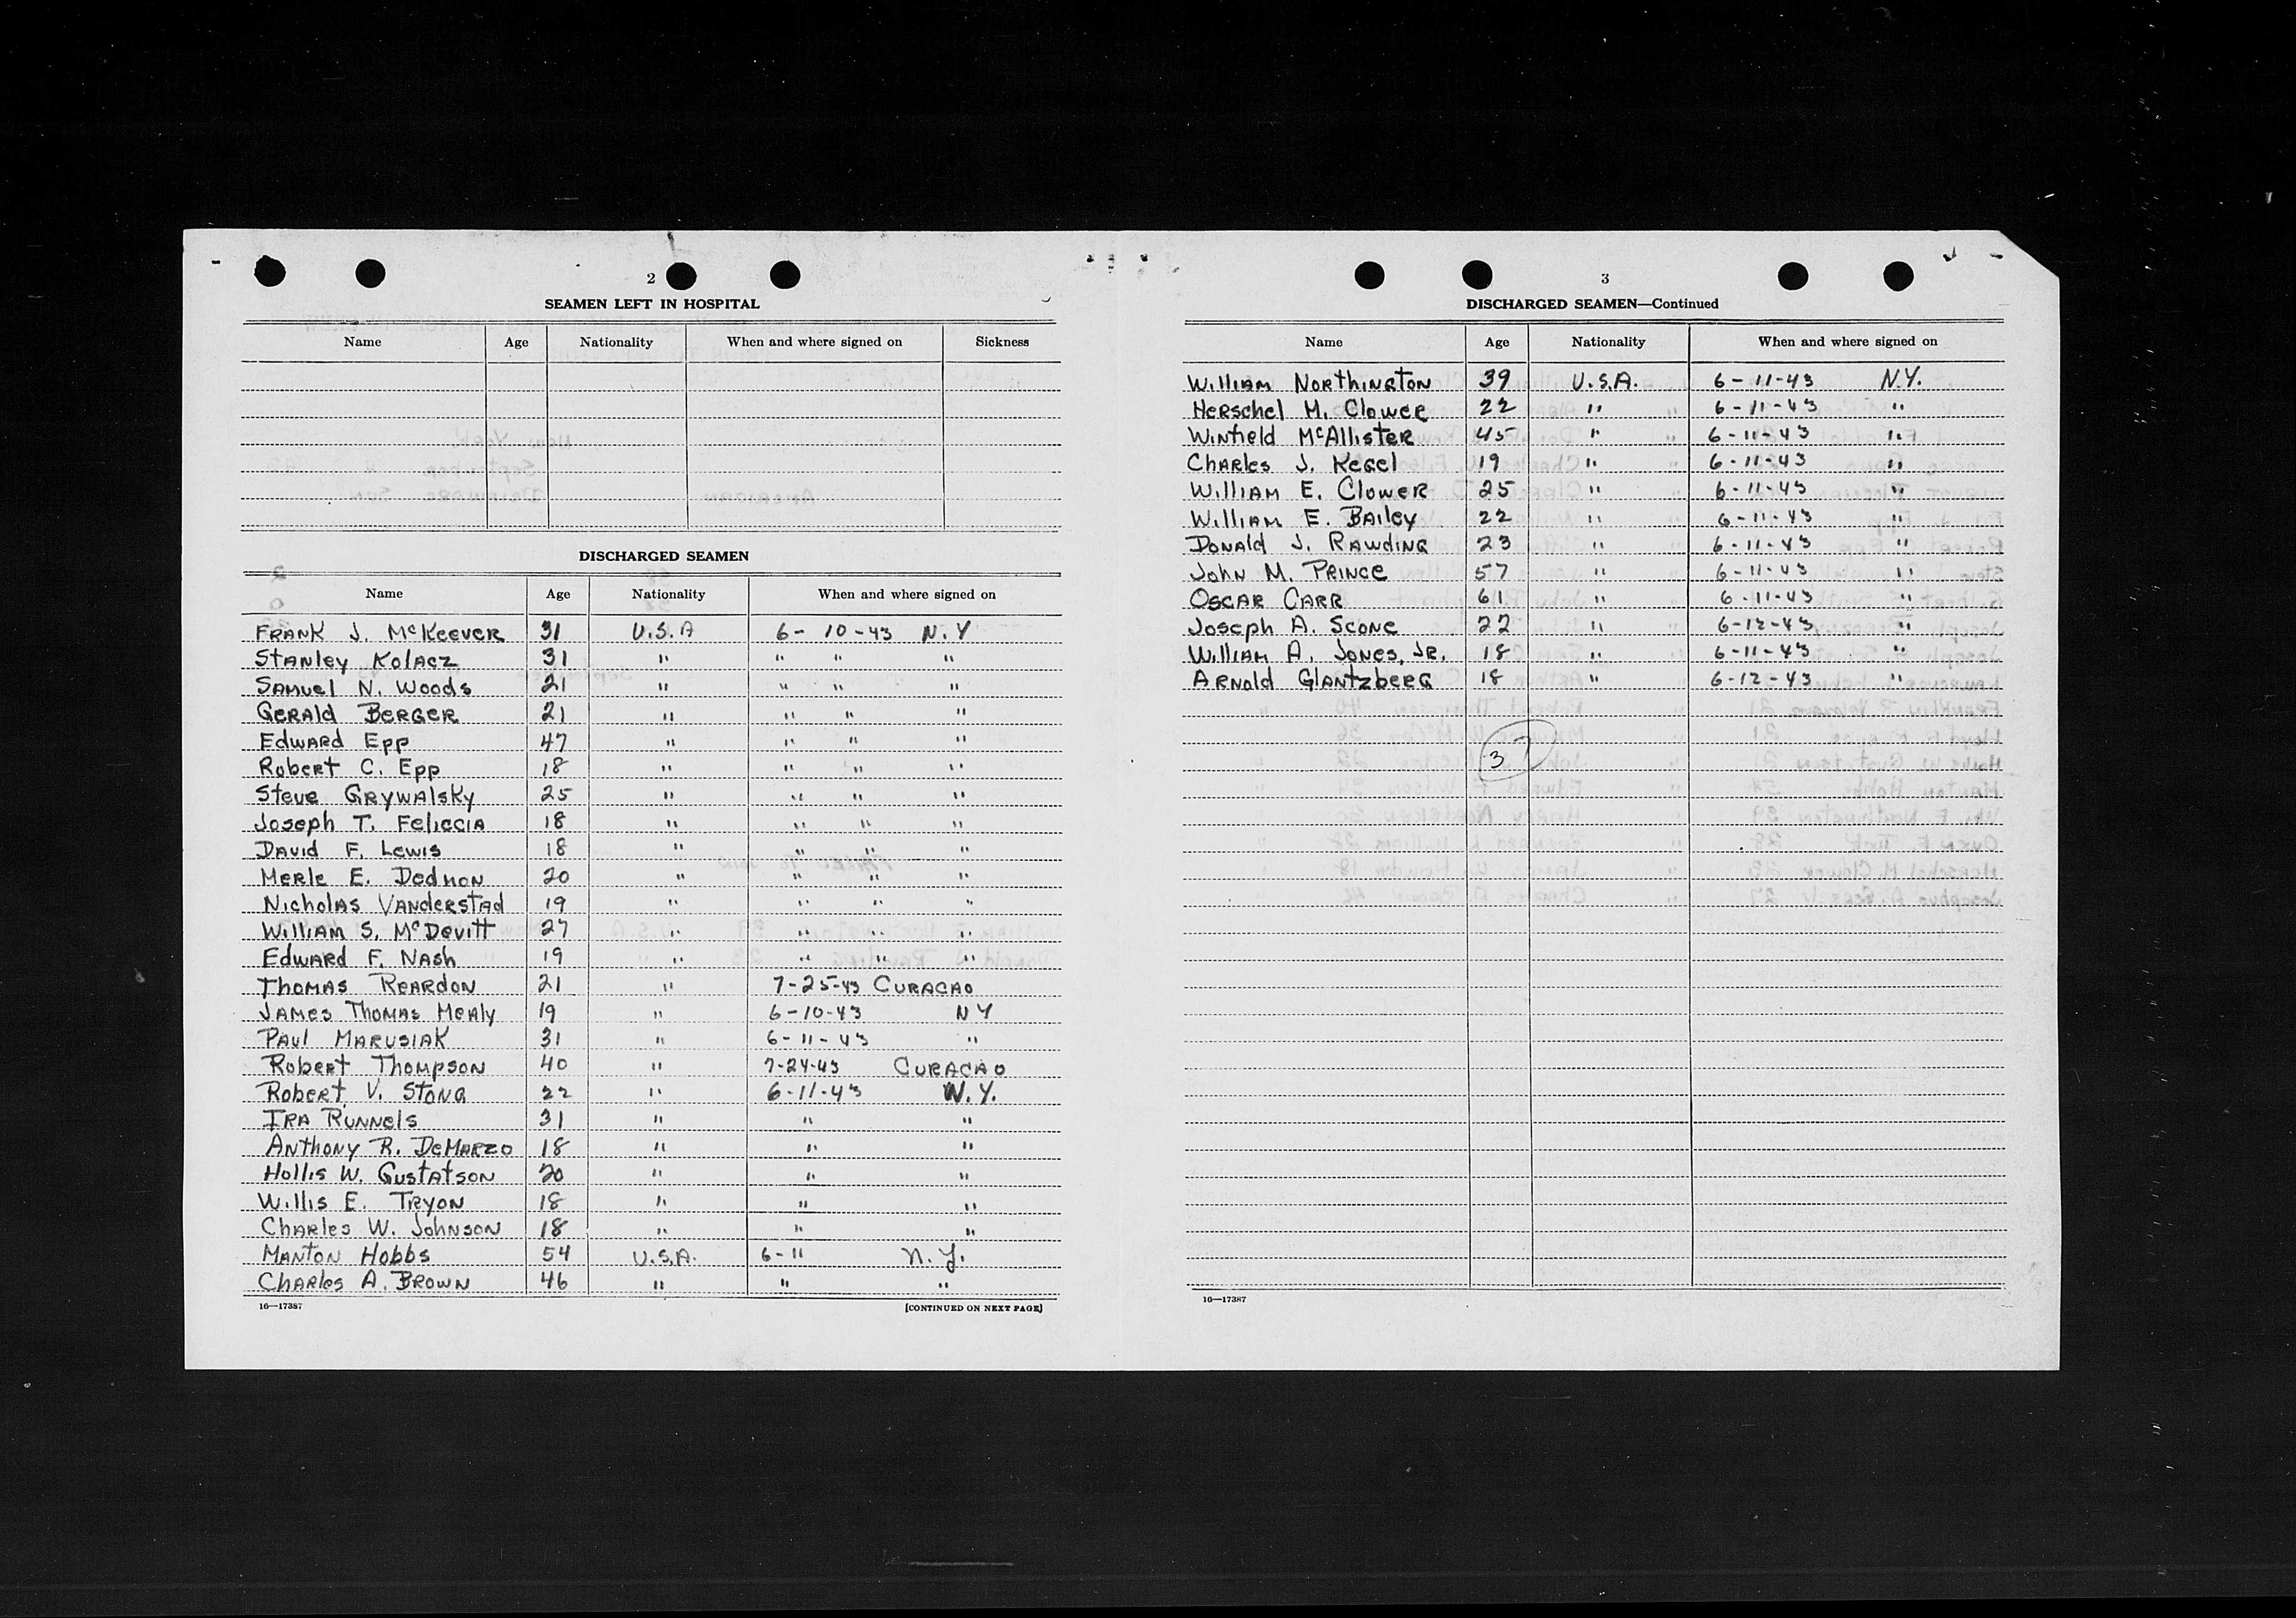 2
SEAMEN LEFT IN HOSPITAL
Name Age Nationality When and where signed on Sickness
DISCHARGED SEAMEN
Name Age Nationality When and where signed on
FRANK J. McKeever 31 U.S.A 6-10-43 N.Y
Stanley Kolacz 31 " " " "
Samuel N. Woods 21 " " " "
Gerald Berger 21 " " " "
Edward Epp 47 " " " "
Robert C. Epp 18 " " " "
Steve Grywalsky 25 " " " "
Joseph T. Feliccia 18 " " " "
David F. Lewis 18 " " " "
Merle E. Dedmon 20 " " " "
Nicholas Vanderstad 19 " " " "
William S. McDevitt 27 " " " "
Edward F. Nash 19 " " " "
Thomas Reardon 21 " 7-25-43 CURACAO
James Thomas Mealy 19 " 6-10-43 NY
Paul Marusiak 31 " 6-11-43 "
Robert Thompson 40 " 7-24-43 CURACAO
Robert V. Stong 22 " 6-11-43 N.Y.
Ira Runnels 31 " " "
Anthony R. DeMarzo 18 " " "
Hollis W. Gustatson 20 " " "
Willis E. Tryon 18 " " "
Charles W. Johnson 18 " " "
Manton Hobbs 54 U.S.A. 6-11 N.Y.
Charles A. Brown 46 " " "
16—17387 [CONTINUED ON NEXT PAGE]
3
DISCHARGED SEAMEN—Continued
Name Age Nationality When and where signed on
William Northington 39 U.S.A. 6-11-43 N.Y.
Herschel M. Clower 22 " 6-11-43 "
Winfield McAllister 45 " 6-11-43 "
Charles J. Kegel 19 " 6-11-43 "
William E. Clower 25 " 6-11-43 "
William E. Bailey 22 " 6-11-43 "
Donald J. Rawding 23 " 6-11-43 "
John M. Prince 57 " 6-11-43 "
Oscar Carr 61 " 6-11-43 "
Joseph A. Scone 22 " 6-12-43 "
William A. Jones, Jr. 18 " 6-11-43 "
Arnold Glantzberg 18 " 6-12-43 "
37
16—17387